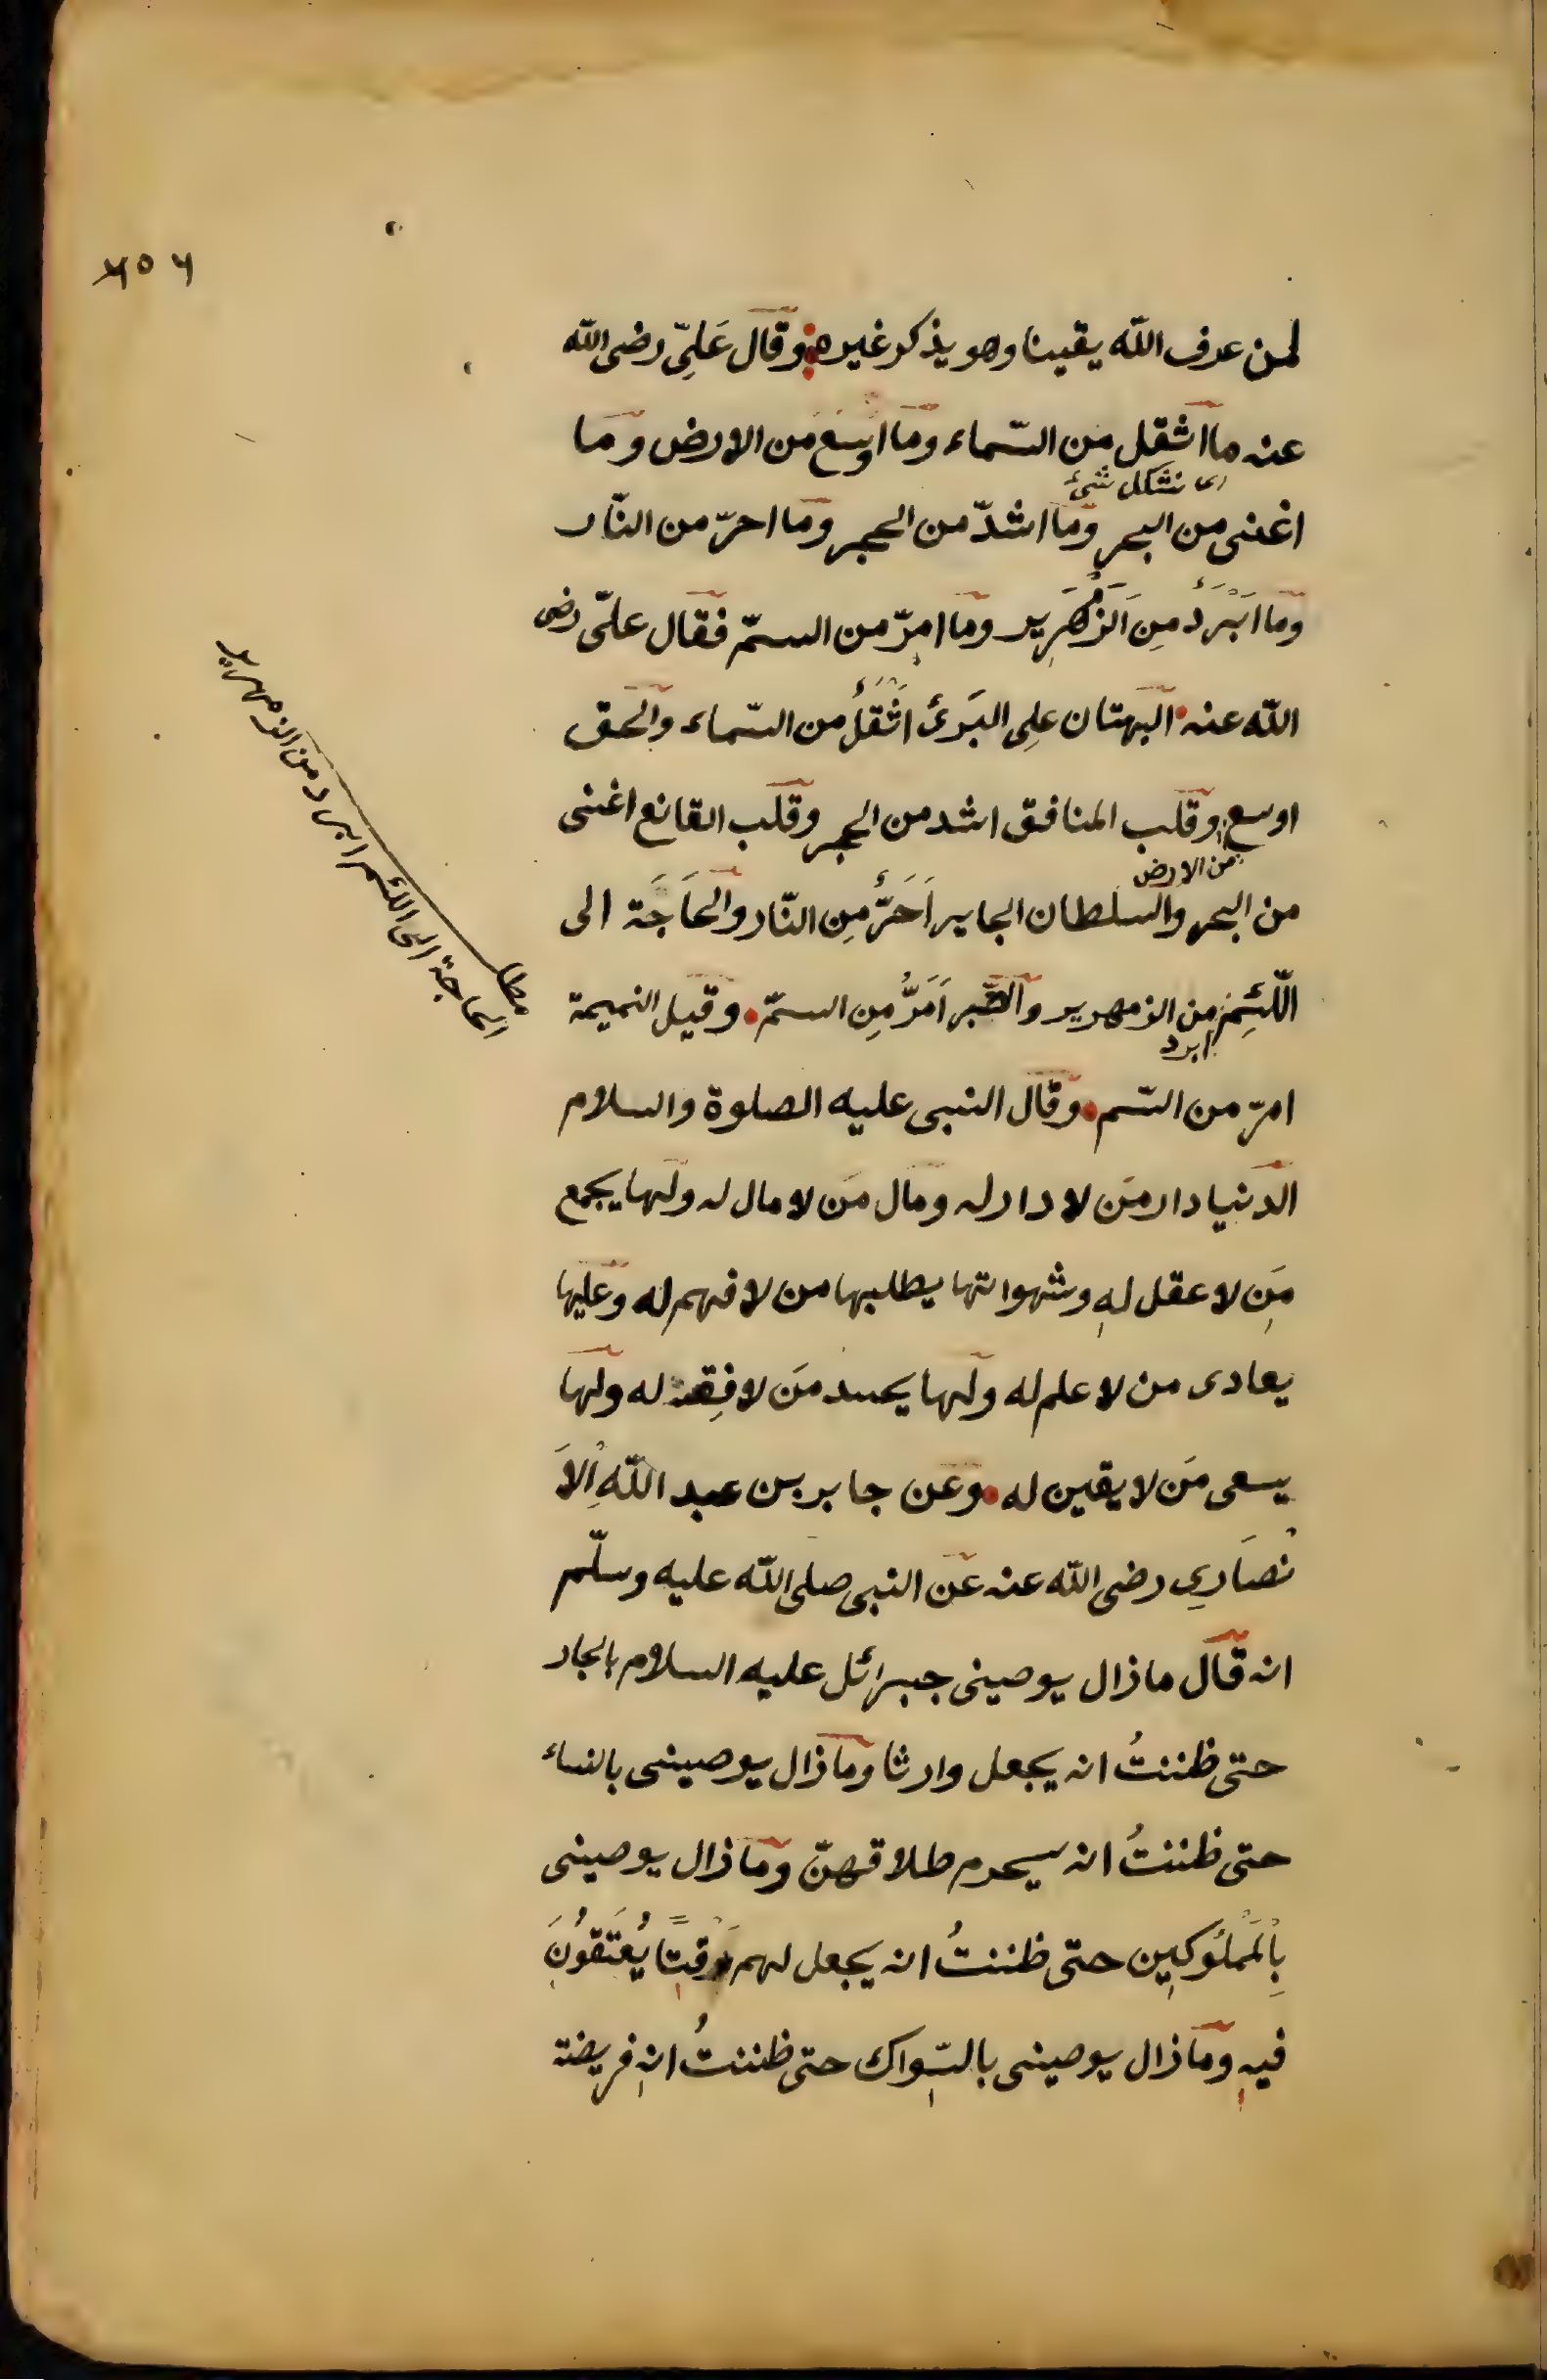 ٢٥٦
لمن عرف الله يقينا وهو يذكر غيره وقال عَلِيّ رضى الله
عنه ما اثقل من السّماء وما اوسع من الارض وما
اى نشكل شئ
اغنى من البحر وما اشدّ من الحجر وما احرّ من النّار
وما اَبْرَدُ مِنَ الزَمْهَرِير وما امرّ من السمّ فقال علىّ رضى
الله عنه البهتان على البَرئ اثْقَلُ من السّماء والحق
اوسع وقلب المنافق اشد من الحجر وقلب القانع اغنى
من الارض
من البحر والسلطان الجاير اَحَرُّ مِن النّار والحَاجَة الى
اللّئِيم من الزمهرير والصّبر اَمَرُّ مِن السمّ وقيل النميمة
ابرد
امرّ من السّم وقال النبى عليه الصلوة والسلام
الدنيا دار مَن لا دار له ومال مَن لا مال له ولها يجمع
مَن لا عقل له وشهواتها يطلبها من لا فهم له وعليها
يعادى من لا علم له ولها يحسد مَن لا فِقه له ولها
يسعى مَن لا يقين له وعن جابر بن عبد اللهِ الاَ
نْصَارِي رضى الله عنه عن النبى صلى الله عليه وسلّم
انه قال ما زال يوصينى جبرائل عليه السلام بالجار
حتى ظننتُ انه يجعل وارثا وما زال يوصينى بالنساء
حتى ظننتُ انه سيحرم طلاقهنّ وما زال يوصينى
بِالْمَمْلُوكِين حتى ظننتُ انه يجعل لهم وَقْتًا يُعْتَقُونَ
فيه وما زال يوصينى بالسّواك حتى ظننتُ انه فريضة
مطلب
الحاجة الى اللئم ابرد من الزمهرير